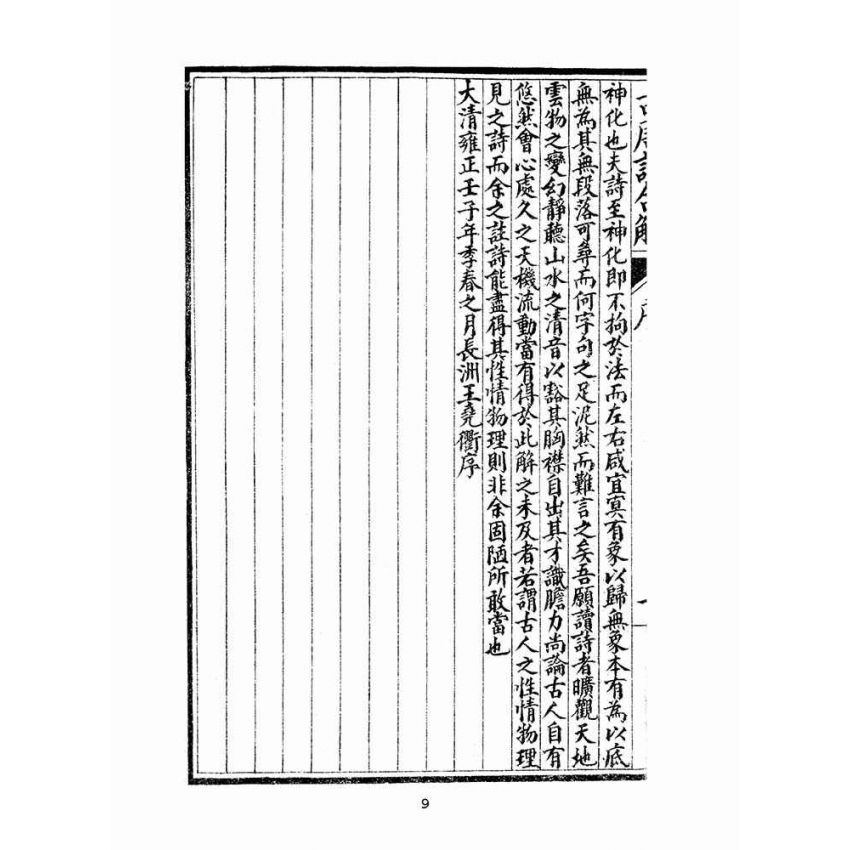 古唐詩合解
序
神化也夫詩至神化即不拘於法而左右咸宜寘有象以歸無象本有為以底
無為其無段落可尋而何字句之足泥然而難言之矣吾願讀詩者曠觀天地
雲物之變幻靜聽山水之清音以豁其胸襟自出其才識膽力尚論古人自有
悠然會心處久之天機流動當有得於此解之未及者若謂古人之性情物理
見之詩而余之註詩能盡得其性情物理則非余固陋所敢當也
大清雍正壬子年季春之月長洲王堯衢序
9